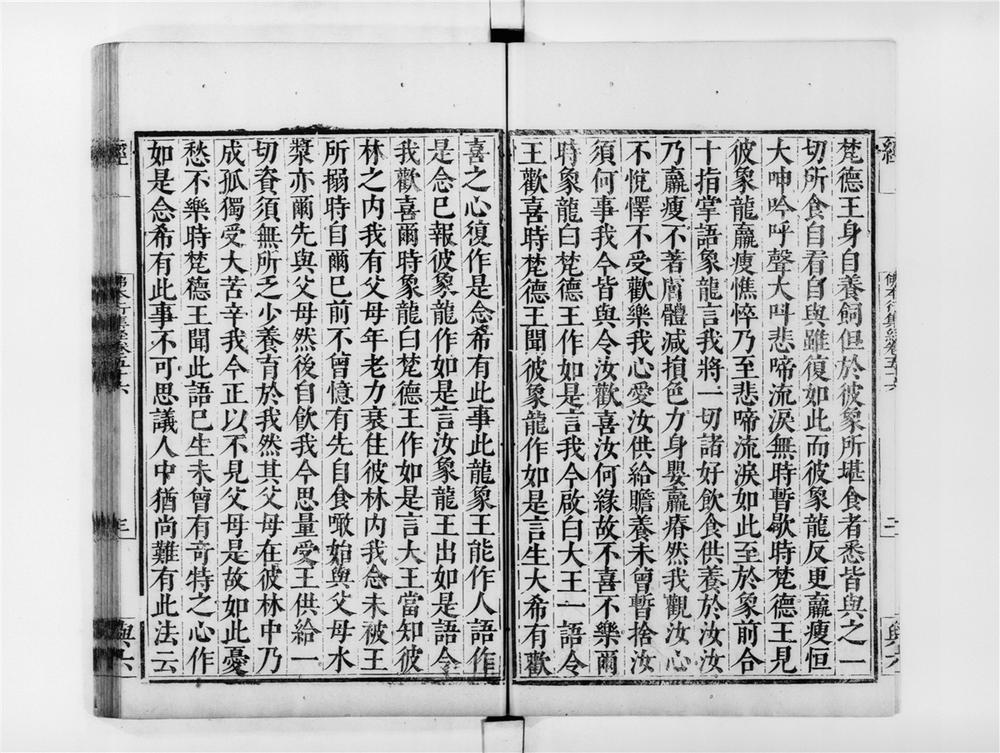 梵德王身自養飼但於彼象所堪食者悉皆與之一
切所食自看自與雖復如此而彼象龍反更羸瘦恒
大呻吟呼聲大叫悲啼流淚無時暫歇時梵德王見
彼象龍羸瘦憔悴乃至悲啼流淚如此至於象前合
十指掌語象龍言我將一切諸好飲食供養於汝汝
乃羸瘦不著膚體減損色力身嬰羸瘠然我觀汝心
不悅懌不受歡樂我心愛汝供給瞻養未曾暫捨汝
須何事我今皆與令汝歡喜汝何緣故不喜不樂爾
時象龍白梵德王作如是言我今啟白大王一語令
王歡喜時梵德王聞彼象龍作如是言生大希有歡
喜之心復作是念希有此事此龍象王能作人語作
是念已報彼象龍作如是言汝象龍王出如是語令
我歡喜爾時象龍白梵德王作如是言大王當知彼
林之內我有父母年老力衰住彼林內我念未被王
所搦時自爾已前不曾憶有先自食噉始與父母水
漿亦爾先與父母然後自飲我今思量愛王供給一
切資須無所乏少養育於我然其父母在彼林中乃
成孤獨受大苦辛我今正以不見父母是故如此憂
愁不樂時梵德王聞此語已生未曾有奇特之心作
如是念希有此事不可思議人中猶尚難有此法云
經
佛本行集經卷五十六
二
與六
經
佛本行集經卷五十六
三
與六